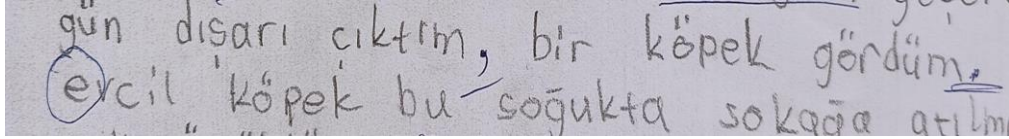 gün dışarı çıktım, bir köpek gördüm.
evcil köpek bu soğukta sokağa atılm